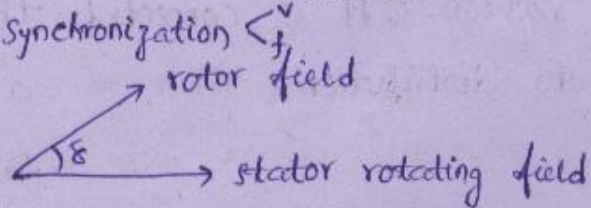 synchronization < v
f,
rotor field
δ
stator rotating field